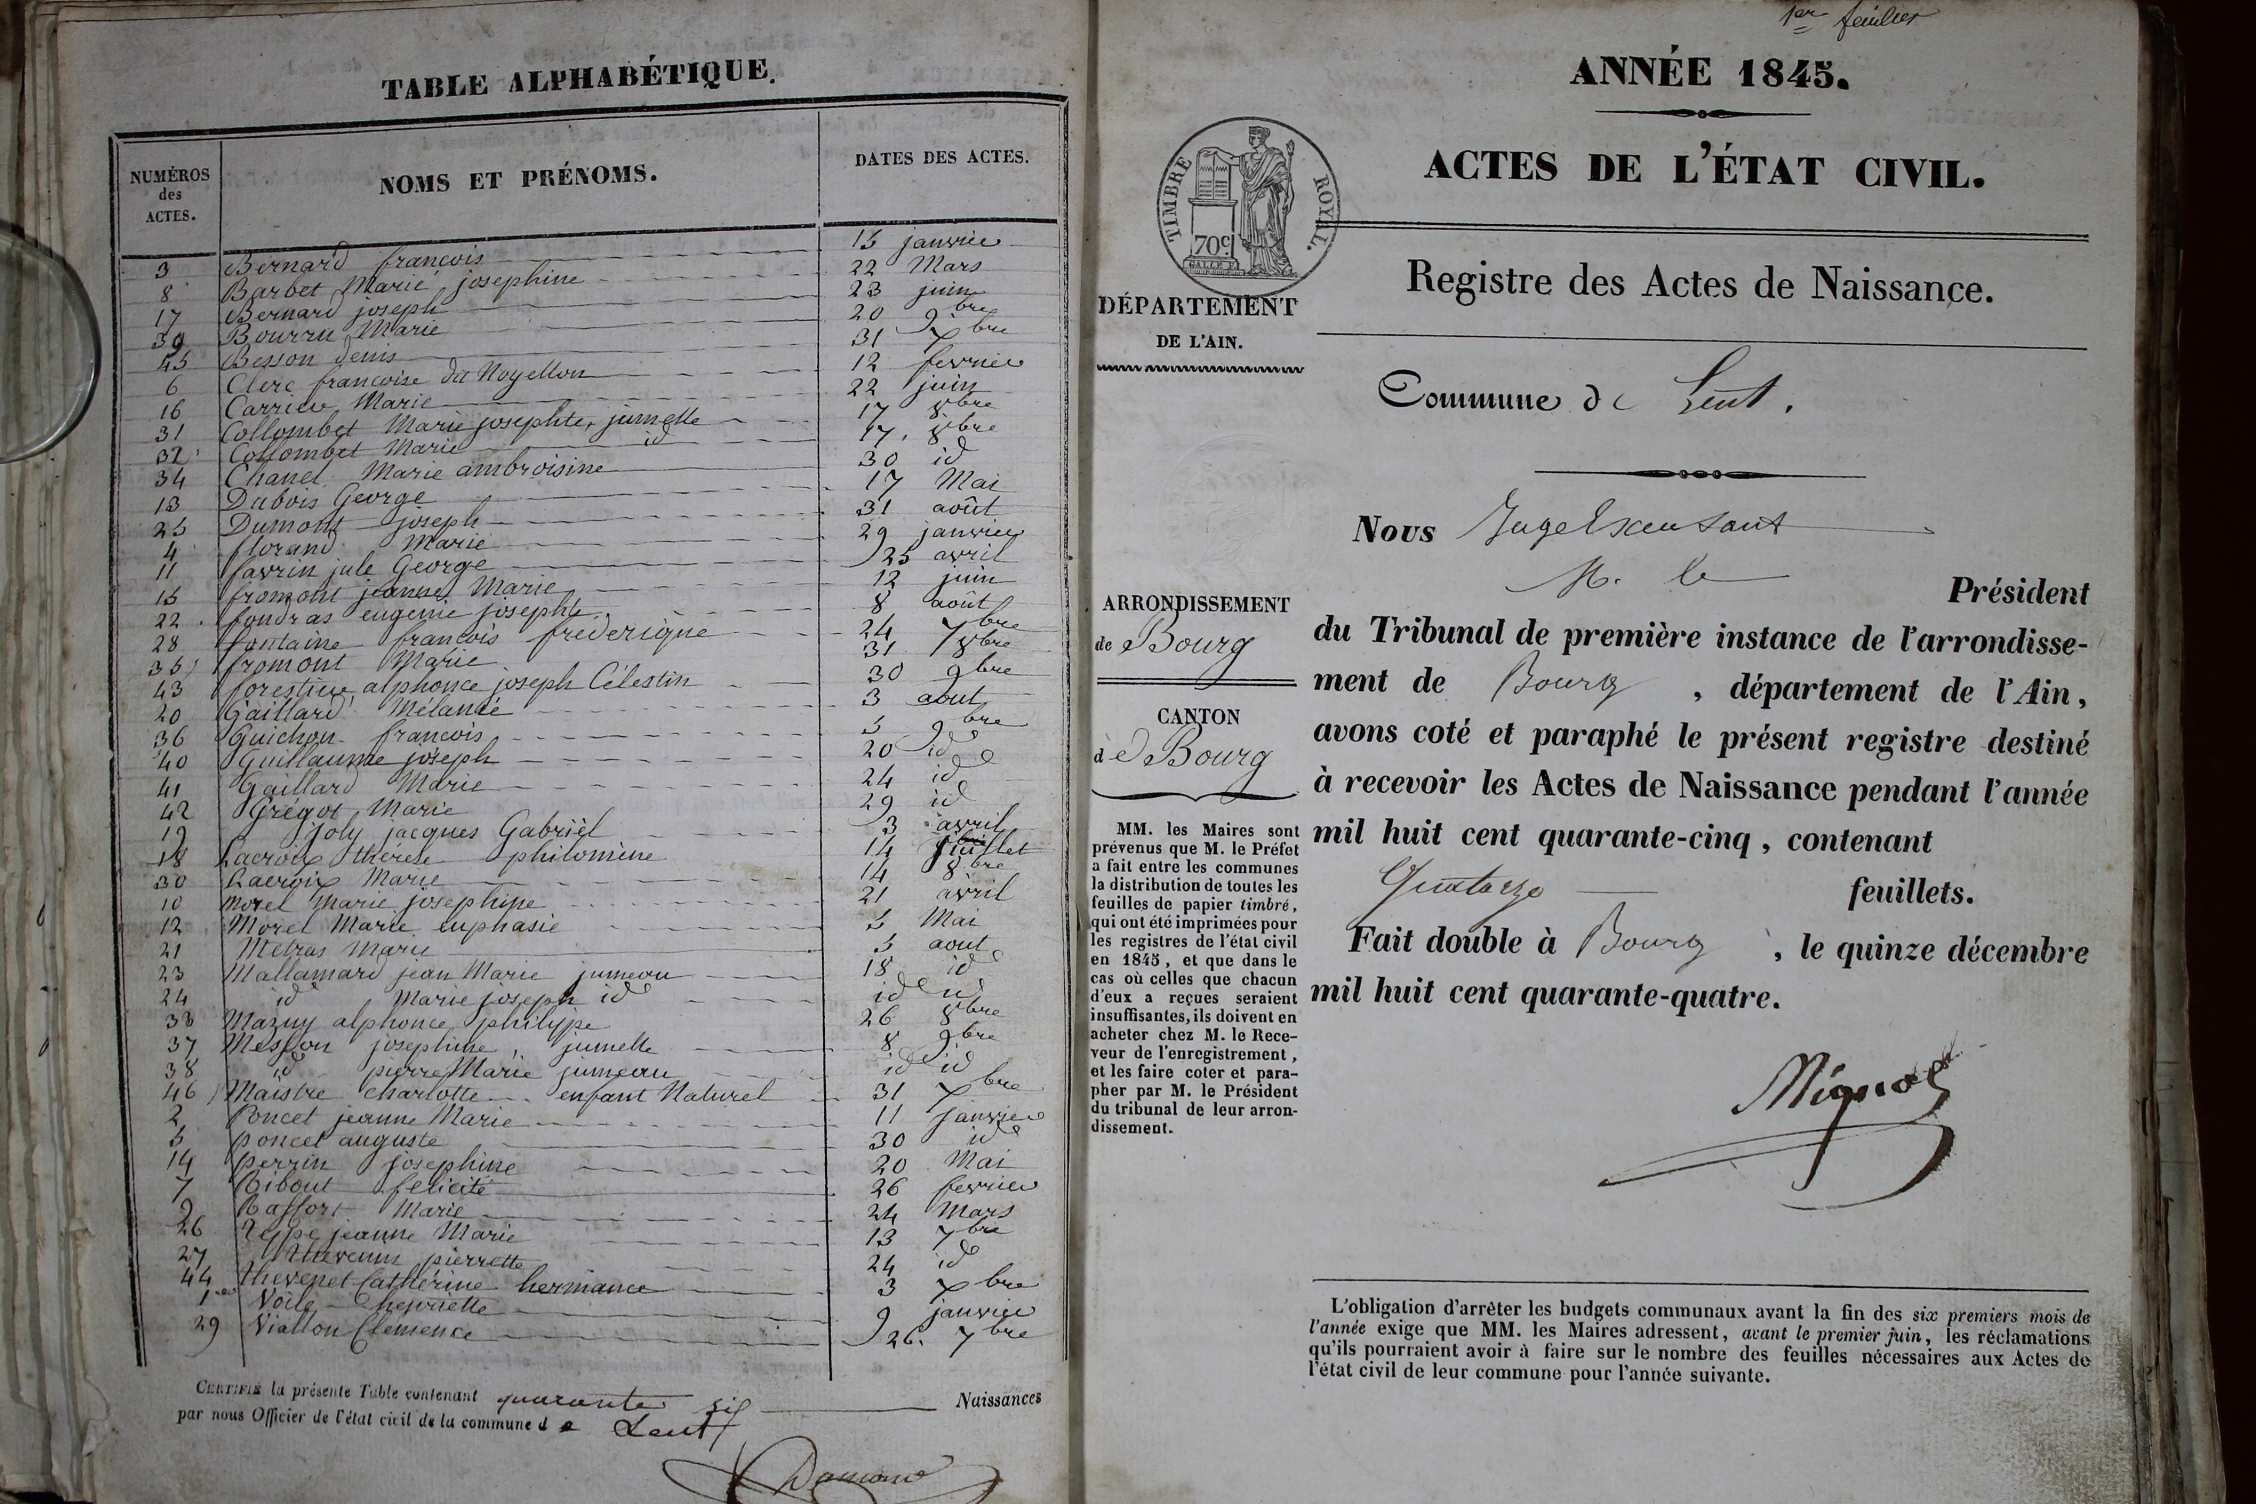 TABLE ALPHABÉTIQUE.
NUMÉROS des ACTES. NOMS ET PRÉNOMS. DATES DES ACTES.
3 Bernard francois 15 janvier
8 Barbet Marie josephine 22 Mars
17 Bernard joseph 23 juin
39 Bourru Marie 20 9bre
45 Besson denis 31 Xbre
6 Clerc francoise du Noyellon 12 fevrier
16 Carrier Marie 22 juin
31 Collombet Marie josephte, jumelle 17 8bre
32 Collombet Marie id 17. 8bre
34 Chanel Marie ambroisine 30 id
13 Dubois George 17 Mai
25 Dumont joseph 31 août
4 florand Marie 29 janvier
11 favrin jule George 25 avril
15 fromont jeanne Marie 12 juin
22 fondras eugenie josephte 8 août
28 fontaine francois frederique 24 7bre
35 fromont Marie 31 8bre
43 forestier alphonce joseph Célestin 30 9bre
20 Gaillard Mélanie 3 aout
36 Guichon francois 5 9bre
40 Guillaume joseph 20 id
41 Gaillard Marie 24 id
42 Grégot Marie 29 id
19 Joly jacques Gabriel 3
18 Lacroix thérese philomène 14 juillet
30 Lacroix Marie 14 8bre
10 Morel Marie josephine 21 avril
12 Morel Marie euphasie 5 Mai
21 Metras Marie 5 aout
23 Mallamard jean Marie jumeau 18 id
24 id Marie joseph id id id
33 Mazuy alphonce philippe 26 8bre
37 josephine jumelle 8 9bre
38 id pierre Marie jumeau id id
46 Maistre charlotte enfant Naturel 31 Xbre
2 Poncet jeanne Marie 11 janvier
5 poncet auguste 30 id
14 perrin josephine 20 Mai
7 Ribout felicité 26 fevrier
9 Raffort Marie 24 Mars
26 Teppe jeanne Marie 13 7bre
27 pierrette 24 id
44 thevenet Cathérine hermance 3 Xbre
1er 9 janvier
29 Viallon Clémence 26. 7bre
CERTIFIÉ la présente Table contenant quarante six Naissances
par nous Officier de l'état civil de la commune de Lent
1er feuillet
ANNÉE 1845.
ACTES DE L'ÉTAT CIVIL.
TIMBRE ROYAL.
70c
Registre des Actes de Naissance.
DÉPARTEMENT
DE L'AIN.
Commune de Lent.
Nous
M. le Président
du Tribunal de première instance de l'arrondisse-
ment de Bourg, département de l'Ain,
avons coté et paraphé le présent registre destiné
à recevoir les Actes de Naissance pendant l'année
mil huit cent quarante-cinq, contenant
Quatorze feuillets.
Fait double à Bourg, le quinze décembre
mil huit cent quarante-quatre.
ARRONDISSEMENT
de Bourg
CANTON
de Bourg
MM. les Maires sont
prévenus que M. le Préfet
a fait entre les communes
la distribution de toutes les
feuilles de papier timbré,
qui ont été imprimées pour
les registres de l'état civil
en 1845, et que dans le
cas où celles que chacun
d'eux a reçues seraient
insuffisantes, ils doivent en
acheter chez M. le Rece-
veur de l'enregistrement,
et les faire coter et para-
pher par M. le Président
du tribunal de leur arron-
dissement.
L'obligation d'arrêter les budgets communaux avant la fin des six premiers mois de
l'année exige que MM. les Maires adressent, avant le premier juin, les réclamations
qu'ils pourraient avoir à faire sur le nombre des feuilles nécessaires aux Actes de
l'état civil de leur commune pour l'année suivante.